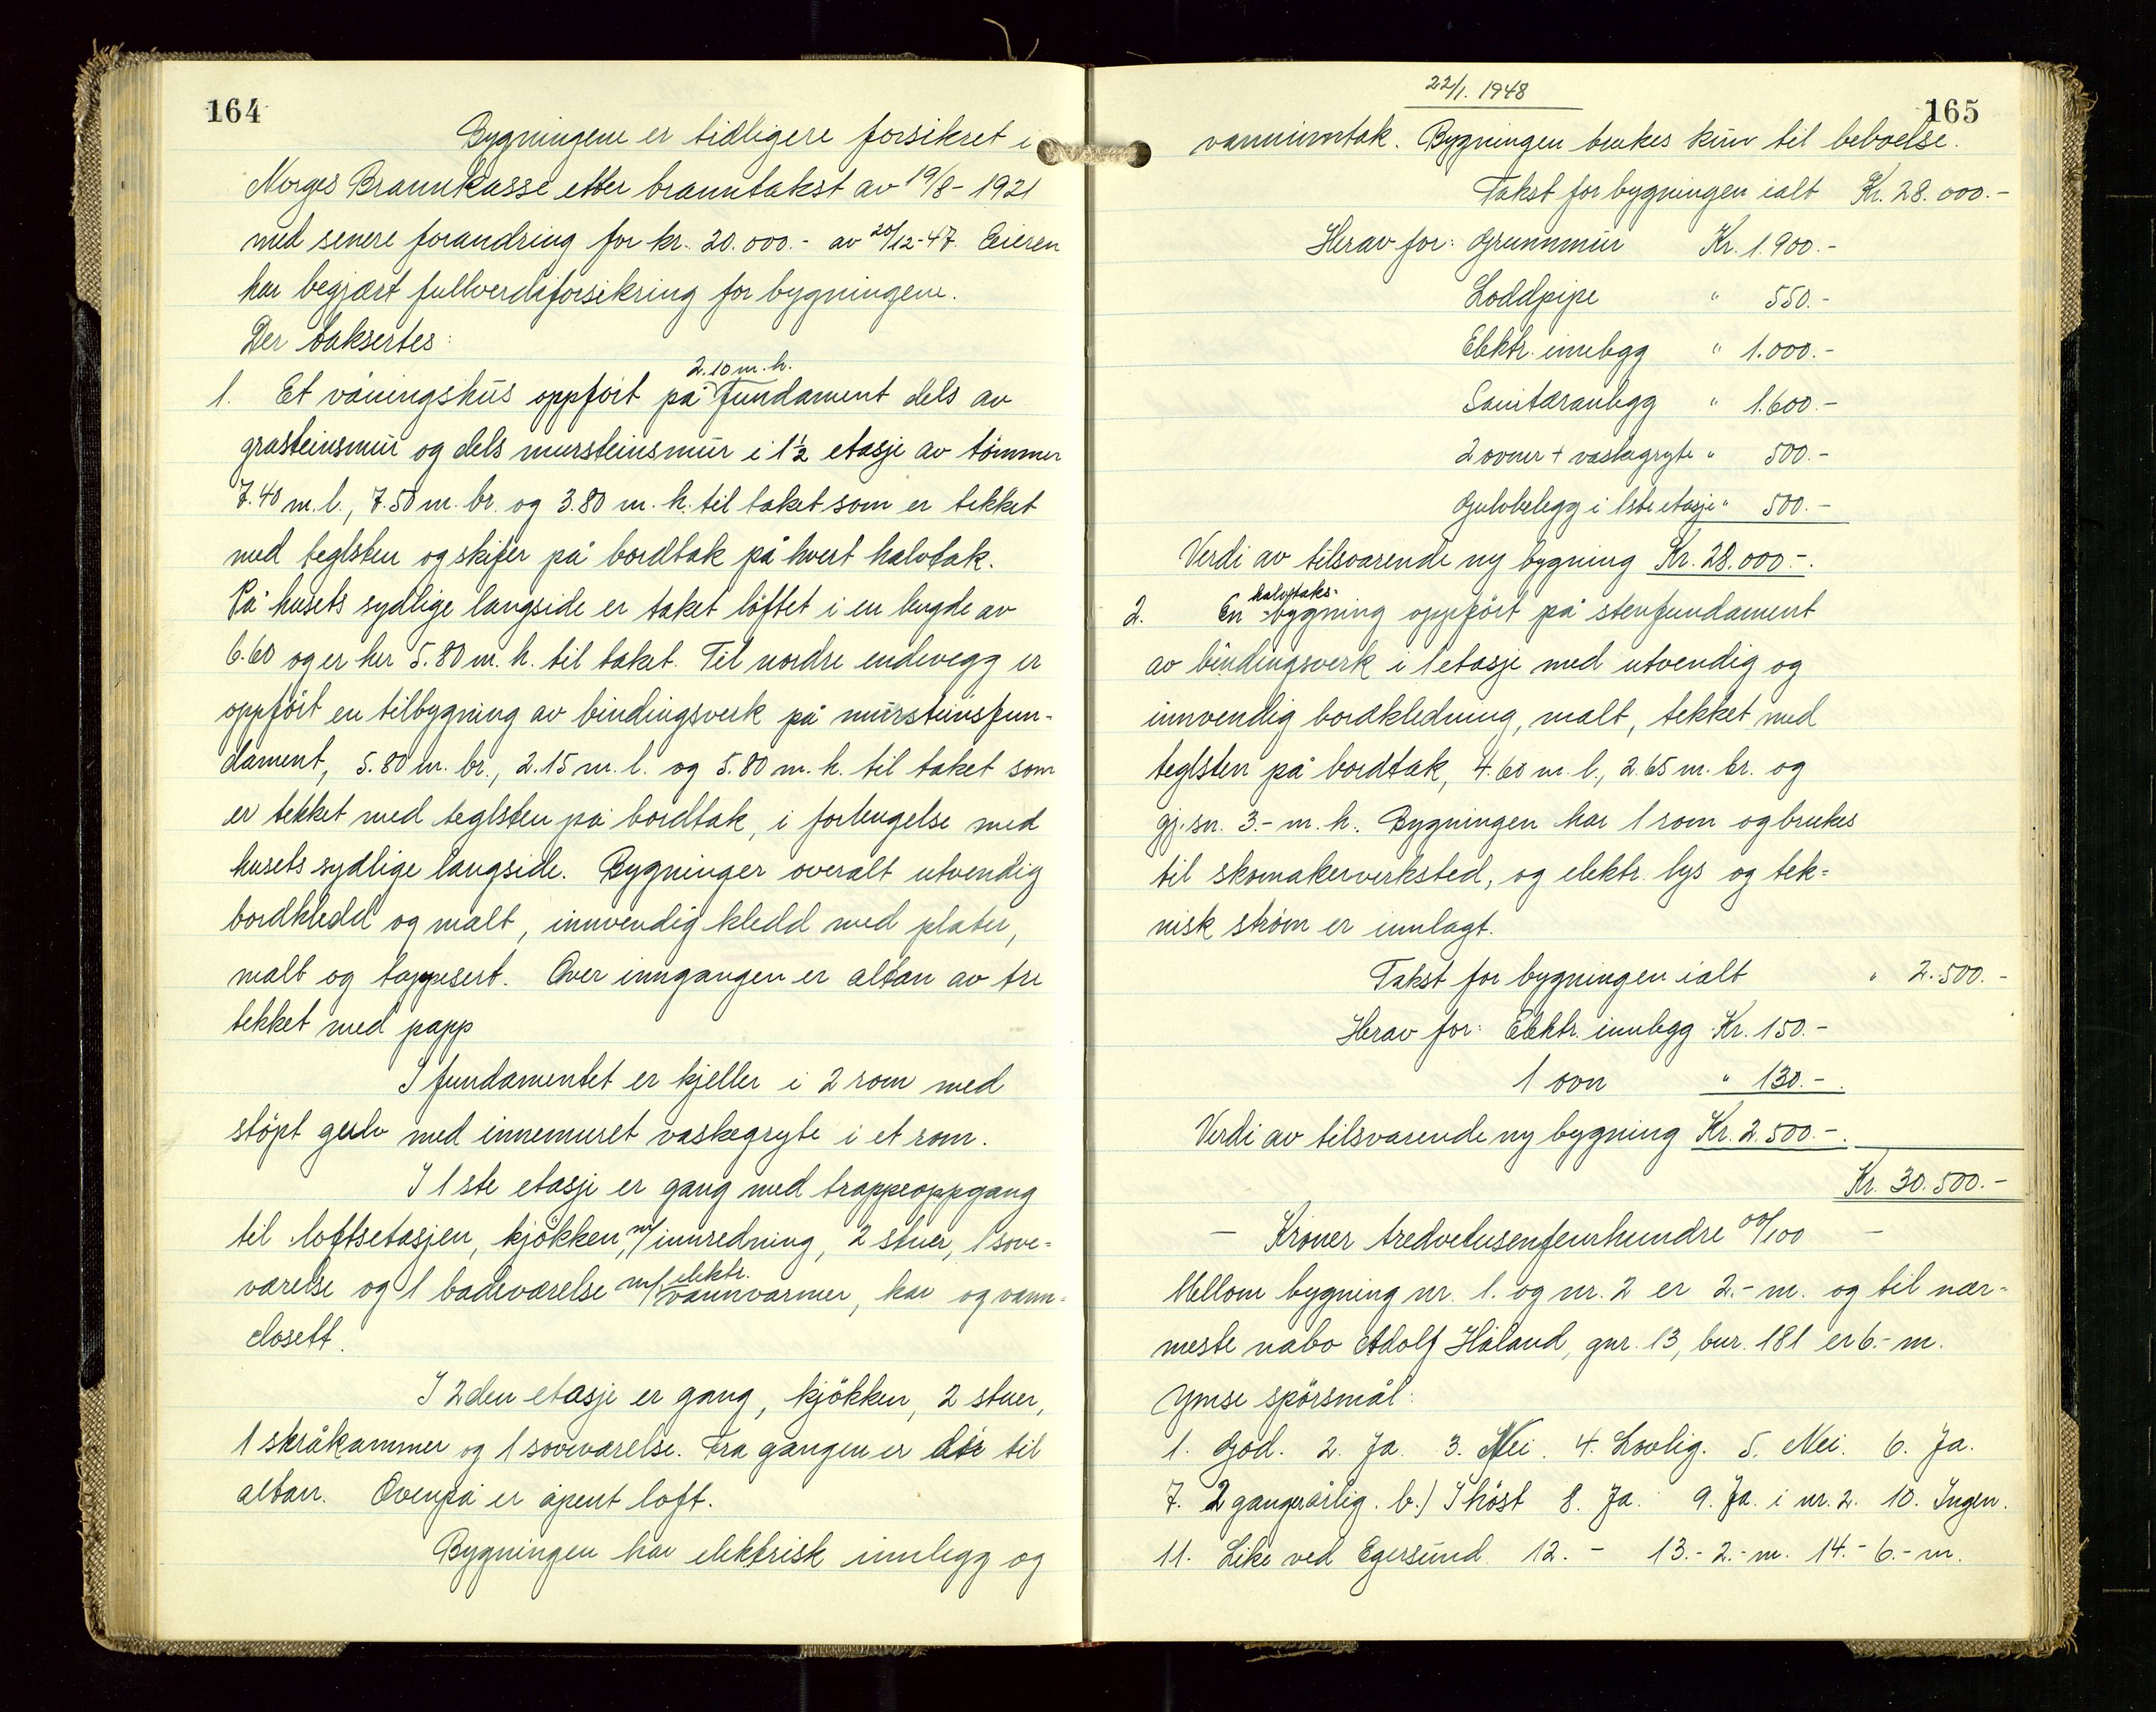 164
Bygningene er tidligere forsikret i
Norges Brannkasse etter branntakst av 19/8 - 1921
med senere forandring for kr. 20.000.- av 20/12-47. Eieren
har begjært fullverdiforsikring for bygningene.
Der taksertes:
2.10 m. h.
1. Et våningshus oppført på fundament dels av
gråsteinsmur og dels mursteinsmur i 1½ etasje av tømmer
7.40 m. l., 7.50 m. br. og 3.80 m. h. til taket som er tekket
med teglsten og skifer på bordtak på hvert halvtak.
På husets sydlige langside er taket löftet i en lengde av
6.60 og er her 5.80 m. h. til taket. Til nordre endevegg er
oppfört en tilbygning av bindingsverk på mursteinsfun-
dament, 5.80 m. br., 2.15 m. l. og 5.80 m. h. til taket som
er tekket med teglsten på bordtak, i forlengelse med
husets sydlige langside. Bygninger overalt utvendig
bordkledd og malt, innvendig kledd med plater,
malt og tappesert. Over inngangen er altan av tre
tekket med papp
I fundamentet er kjeller i 2 rom med
stöpt gulv med innemuret vaskegryte i et rom.
I 1ste etasje er gang med trappeoppgang
til loftsetasjen, kjökken, m/innredning, 2 stuer, 1 sove-
værelse og 1 badeværelse m/elektr. vannvarmer, kar og vann-
closett.
I 2den etasje er gang, kjökken, 2 stuer,
1 skråkammer og 1 soveværelse. Fra gangen er dör til
altan. Ovenpå er åpent loft.
Bygningen har elektrisk innlegg og
22/1. 1948
165
vanninntak. Bygningen brukes kun til beboelse.
Takst for bygningen ialt Kr. 28.000.-
Herav for: Grunnmur Kr. 1.900.-
Loddpipe " 550.-
Elektr. innlegg " 1.000.-
Sanitæranlegg " 1.600.-
2 ovner + vaskegryte " 500.-
Gulvbelegg i 1ste etasje " 500.-
Verdi av tilsvarende ny bygning Kr. 28.000.-.
halvtaks-
2. En -bygning oppfört på stenfundament
av bindingsverk i 1 etasje med utvendig og
innvendig bordkledning, malt, tekket med
teglsten på bordtak, 4.60 m. l., 2.65 m. br. og
gj. sn. 3.- m. h. Bygningen har 1 rom og brukes
til skomakerverksted, og elektr. lys og tek-
nisk ström er innlagt.
Takst for bygningen ialt " 2.500.-
Herav for: Elektr. innlegg Kr. 150.-
1 ovn " 130.-.
Verdi av tilsvarende ny bygning Kr. 2.500.-.
Kr. 30.500.-
- Kroner tredvetusenfemhundre 00/100 -
Mellom bygning nr. 1. og nr. 2 er 2.- m. og til nær-
meste nabo Adolf Håland, gnr. 13, bnr. 181 er 6.- m.
Ymse spörsmål:
1. God. 2. Ja. 3. Nei. 4. Lovlig. 5. Nei. 6. Ja.
7. 2 ganger årlig. b.) I höst 8. Ja. 9. Ja. i nr. 2. 10. Ingen.
11. Like ved Egersund. 12. - 13.- 2.- m. 14.- 6.- m.